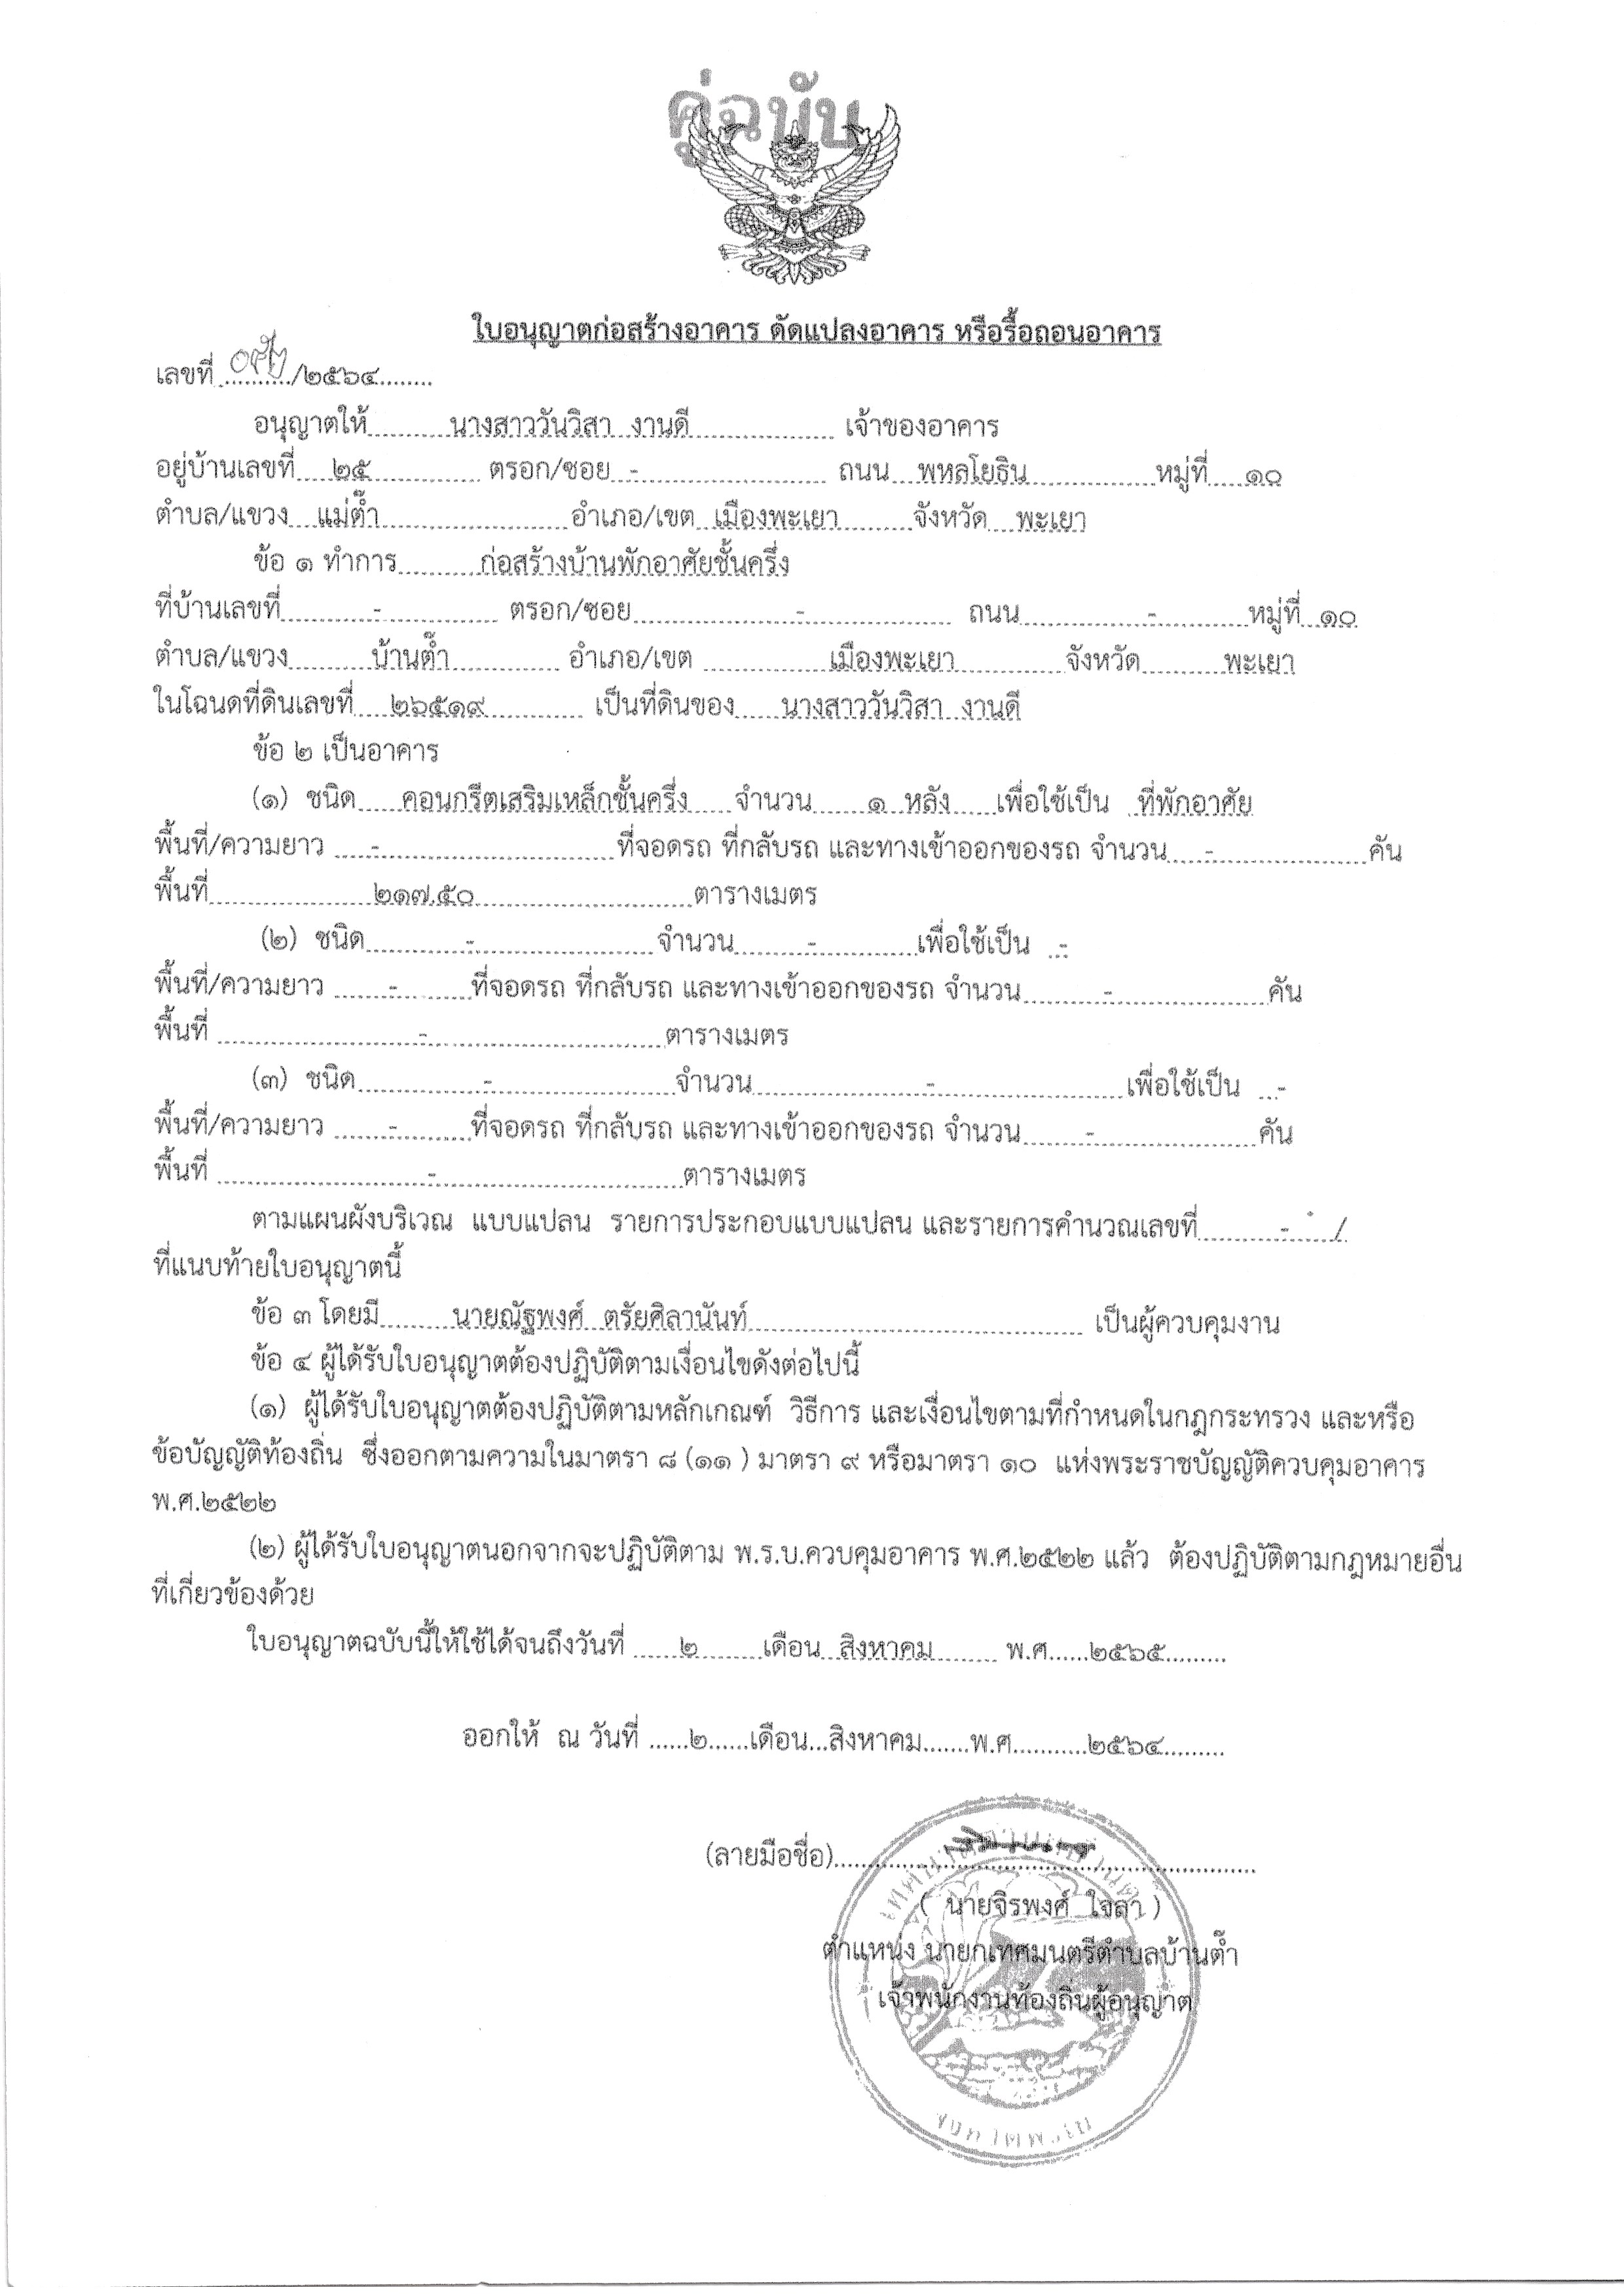 คู่ฉบับ
ใบอนุญาตก่อสร้างอาคาร ดัดแปลงอาคาร หรือรื้อถอนอาคาร
เลขที่ ........../๒๕๖๔........
อนุญาตให้............นางสาววันวิสา งานดี.................... เจ้าของอาคาร
อยู่บ้านเลขที่.....๒๕............... ตรอก/ซอย..-........................... ถนน....พหลโยธิน...................หมู่ที่.....๑๐
ตำบล/แขวง....แม่ต๊ำ............................อำเภอ/เขต...เมืองพะเยา...........จังหวัด....พะเยา
ข้อ ๑ ทำการ............ก่อสร้างบ้านพักอาศัยชั้นครึ่ง
ที่บ้านเลขที่..............-................. ตรอก/ซอย........................-...................... ถนน...................-..............หมู่ที่...๑๐
ตำบล/แขวง............บ้านต๊ำ................ อำเภอ/เขต ...................เมืองพะเยา.................จังหวัด............พะเยา
ในโฉนดที่ดินเลขที่.....๒๖๕๑๙.............. เป็นที่ดินของ.......นางสาววันวิสา งานดี
ข้อ ๒ เป็นอาคาร
(๑) ชนิด......คอนกรีตเสริมเหล็กชั้นครึ่ง......จำนวน........๑ หลัง.......เพื่อใช้เป็น ..ที่พักอาศัย
พื้นที่/ความยาว .....-...................................ที่จอดรถ ที่กลับรถ และทางเข้าออกของรถ จำนวน.....-.......................คัน
พื้นที่........................๒๑๗.๕๐................................ตารางเมตร
(๒) ชนิด...............-...........................จำนวน...........-...............เพื่อใช้เป็น ..-
พื้นที่/ความยาว ........-...........ที่จอดรถ ที่กลับรถ และทางเข้าออกของรถ จำนวน............-.......................คัน
พื้นที่ ..............................-...................................ตารางเมตร
(๓) ชนิด..................-...........................จำนวน..........................-............................เพื่อใช้เป็น ...-
พื้นที่/ความยาว ........-...........ที่จอดรถ ที่กลับรถ และทางเข้าออกของรถ จำนวน..........-.......................คัน
พื้นที่ ...............................-.....................................ตารางเมตร
ตามแผนผังบริเวณ แบบแปลน รายการประกอบแบบแปลน และรายการคำนวณเลขที่.............-......../
ที่แนบท้ายใบอนุญาตนี้
ข้อ ๓ โดยมี...........นายณัฐพงศ์ ตรัยศิลานันท์.................................................. เป็นผู้ควบคุมงาน
ข้อ ๔ ผู้ได้รับใบอนุญาตต้องปฏิบัติตามเงื่อนไขดังต่อไปนี้
(๑) ผู้ได้รับใบอนุญาตต้องปฏิบัติตามหลักเกณฑ์ วิธีการ และเงื่อนไขตามที่กำหนดในกฎกระทรวง และหรือ
ข้อบัญญัติท้องถิ่น ซึ่งออกตามความในมาตรา ๘ (๑๑ ) มาตรา ๙ หรือมาตรา ๑๐ แห่งพระราชบัญญัติควบคุมอาคาร
พ.ศ.๒๕๒๒
(๒) ผู้ได้รับใบอนุญาตนอกจากจะปฏิบัติตาม พ.ร.บ.ควบคุมอาคาร พ.ศ.๒๕๒๒ แล้ว ต้องปฏิบัติตามกฎหมายอื่น
ที่เกี่ยวข้องด้วย
ใบอนุญาตฉบับนี้ให้ใช้ได้จนถึงวันที่ .......๒..........เดือน...สิงหาคม.......... พ.ศ......๒๕๖๕.........
ออกให้ ณ วันที่ ......๒......เดือน...สิงหาคม.......พ.ศ...........๒๕๖๔.........
(ลายมือชื่อ)................................................................
( นายจิรพงศ์ ใจลา )
ตำแหน่ง นายกเทศมนตรีตำบลบ้านต๊ำ
เจ้าพนักงานท้องถิ่นผู้อนุญาต